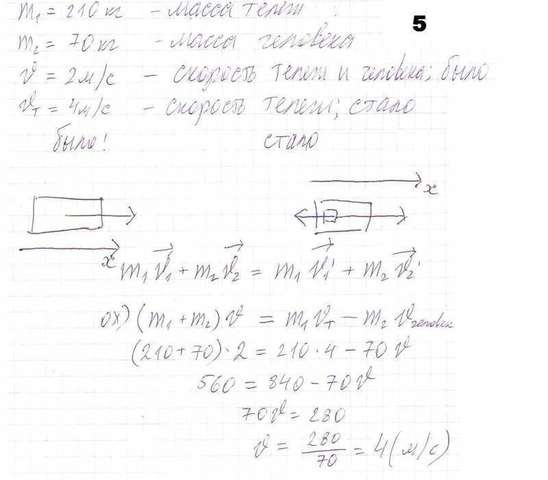 m₁ = 210 кг - массы телеги
5
m₂ = 70 кг - массы человека
v = 2 м/с - скорость телеги и человека; было
vт = 4 м/с - скорость телеги; стало
было! стало
x
x
m₁v⃗₁ + m₂v⃗₂ = m₁v⃗₁' + m₂v⃗₂'
ox) (m₁ + m₂) v = m₁vт - m₂vчеловек
(210 + 70) · 2 = 210 · 4 - 70v
560 = 840 - 70v
70v = 280
v = 280/70 = 4 (м/с)